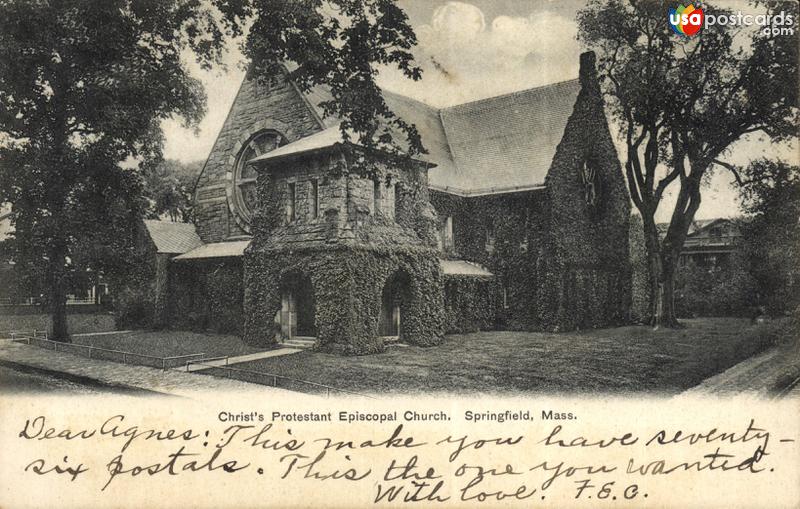 usapostcards
.com
Christ's Protestant Episcopal Church. Springfield, Mass.
Dear Agnes: This make you have seventy-
six postals. This the one you wanted.
With love. F.E.C.